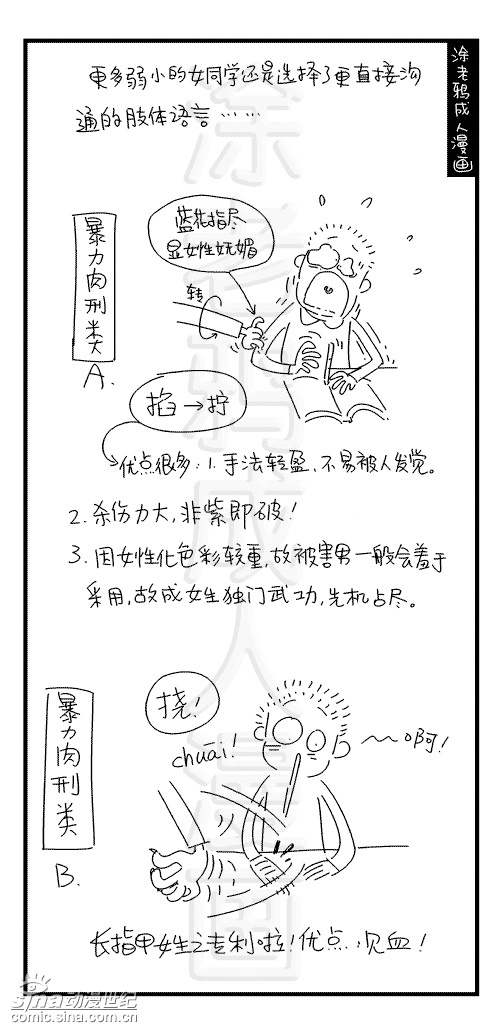 涂老鸦成人漫画
更多弱小的女同学还是选择了更直接沟
通的肢体语言……
暴力肉刑类
A.
蓝花指尽
显女性妩媚
转
掐→拧
优点很多:1.手法轻盈、不易被人发觉。
2.杀伤力大,非紫即破!
3.因女性化色彩较重,故被害男一般会羞于
采用,故成女生独门武功,先机占尽。
暴力肉刑类
B.
挠!
chuāi!
~~啊!
长指甲女生之专利啦!优点:见血!
涂老鸦成人漫画
sina动漫世纪
comic.sina.com.cn